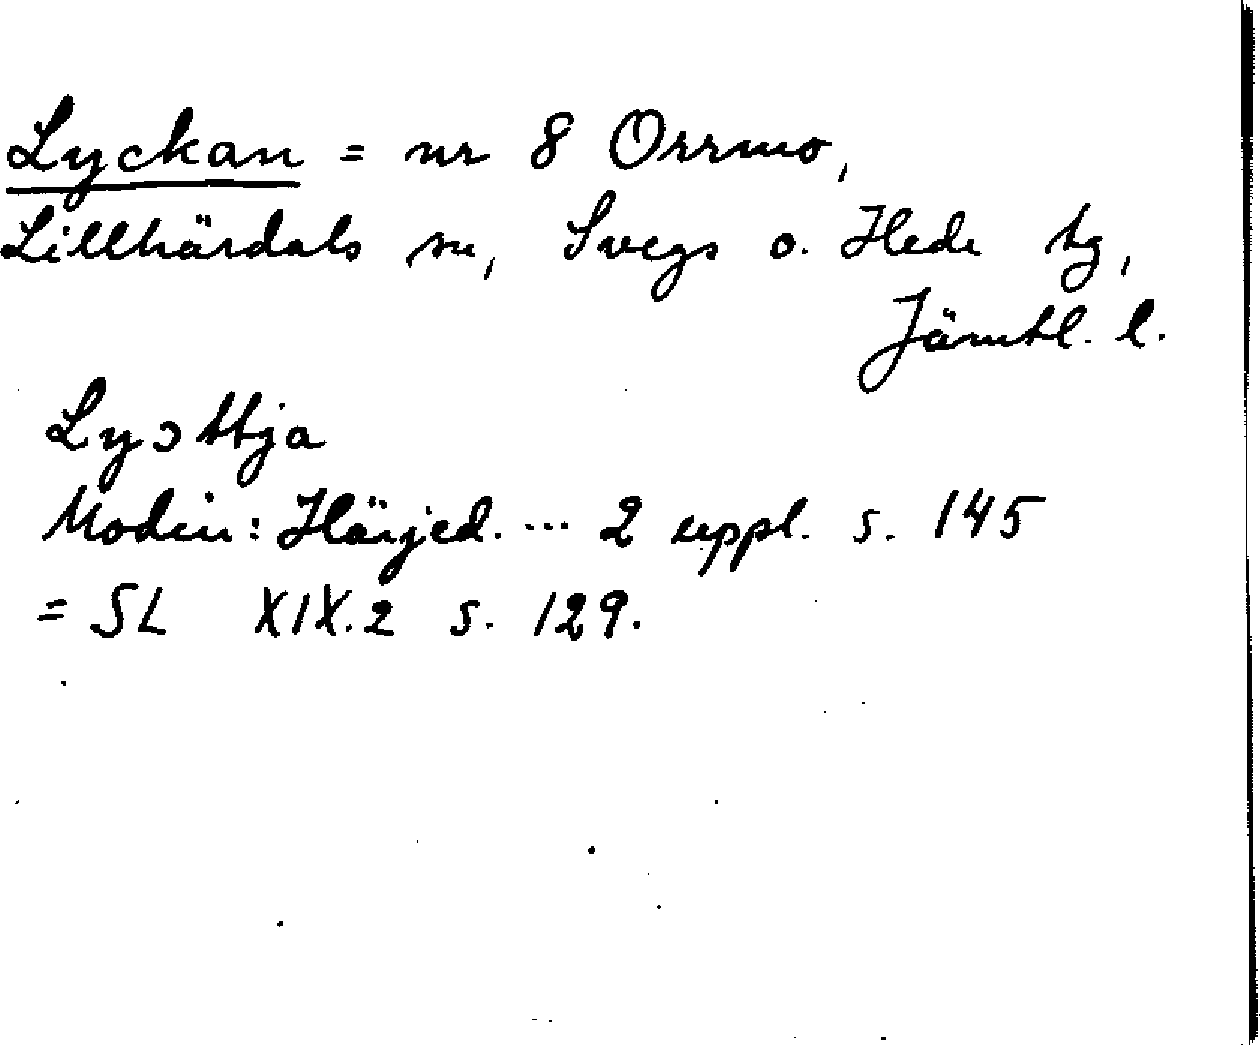 Lyckan = nr 8 Orrmo,
Lillhärdals sn, Svegs o. Hede tg,
Jämtl. l.
Lyɔttja
Modin: Härjed. ... 2 uppl. s. 145
= SL XIX.2 s. 129.